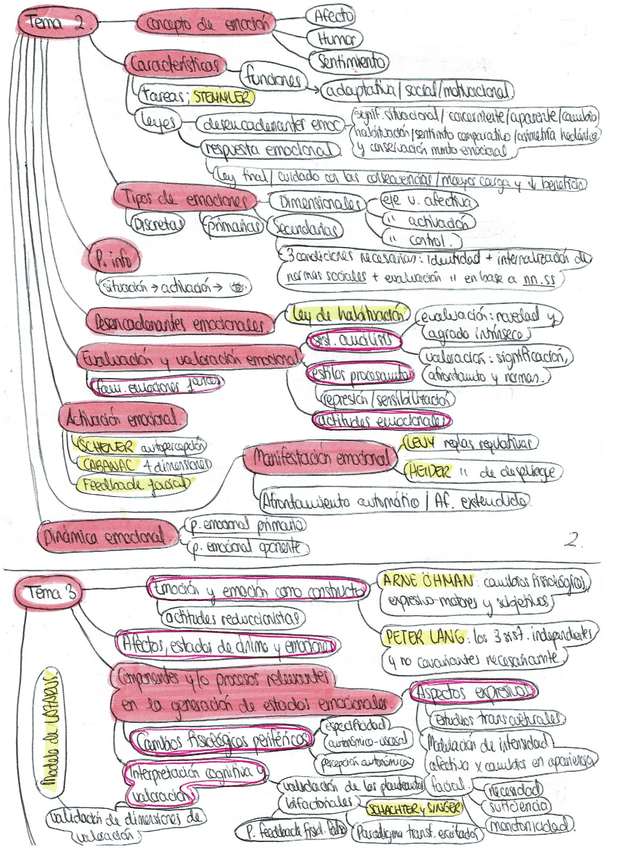 Tema 2
concepto de emoción
Afecto
Humor
Sentimiento
Características
funciones
adaptativa/social/motivacional
tareas; STEMMLER
leyes
desencadenantes emoc
signif. situacional/concerniente/aparente/cambio
habituación/sentimto comparativo/asimetría hedónica
y conservación mmto emocional
respuesta emocional
Ley final/cuidado con las consecuencias/mayor carga y ↓ beneficio
Tipos de emociones
Discretas
primarias
Dimensionales
eje v. afectiva
" activación
" control.
Secundarias
3 condiciones necesarias: identidad + internalización de
normas sociales + evaluación " en base a nn.ss
P. info
Situación → activación →
Desencadenantes emocionales
Ley de habituación
Evaluación y valoración emocional
fam. emociones
sist. auxilios
evaluación: novedad y
agrado intrínseco
valoración: significación,
afrontamto y normas.
estilos procesamto
represión/sensibilización
actitudes emocionales
Activación emocional
SCHERER autopercepción
CABANAC 4 dimensiones
Feedback facial
Manifestación emocional
LEVY reglas regulativas
HEIDER " de despliegue
Afrontamiento automático / Af. extendido.
Dinámica emocional
p. emocional primario
p. emocional oponente
2.
Tema 3
Emoción y emoción como constructo
actitudes reduccionistas
ARNE ÖHMAN: cambios fisiológicos,
expresivo-motores y subjetivos
PETER LANG: los 3 sist. independientes
y no covariantes necesariamnte.
Afectos, estados de ánimo y emociones
Componentes y/o procesos relevantes
en la generación de estados emocionales
Modelo de LAZARUS
Cambios fisiológicos periféricos
especificidad
autonómico-visceral
percepción autonómica
Aspectos expresivos
estudios transculturales
Modulación de intensidad
afectiva x cambios en apariencia
facial
necesidad
suficiencia
monotonicidad.
Interpretación cognitiva y
valoración
validación de dimensiones de
valoración
validación de los planteamtos
bifactoriales
SCHACHTER y SINGER
P. feedback fisiol. falso
Paradigma transf. excitación